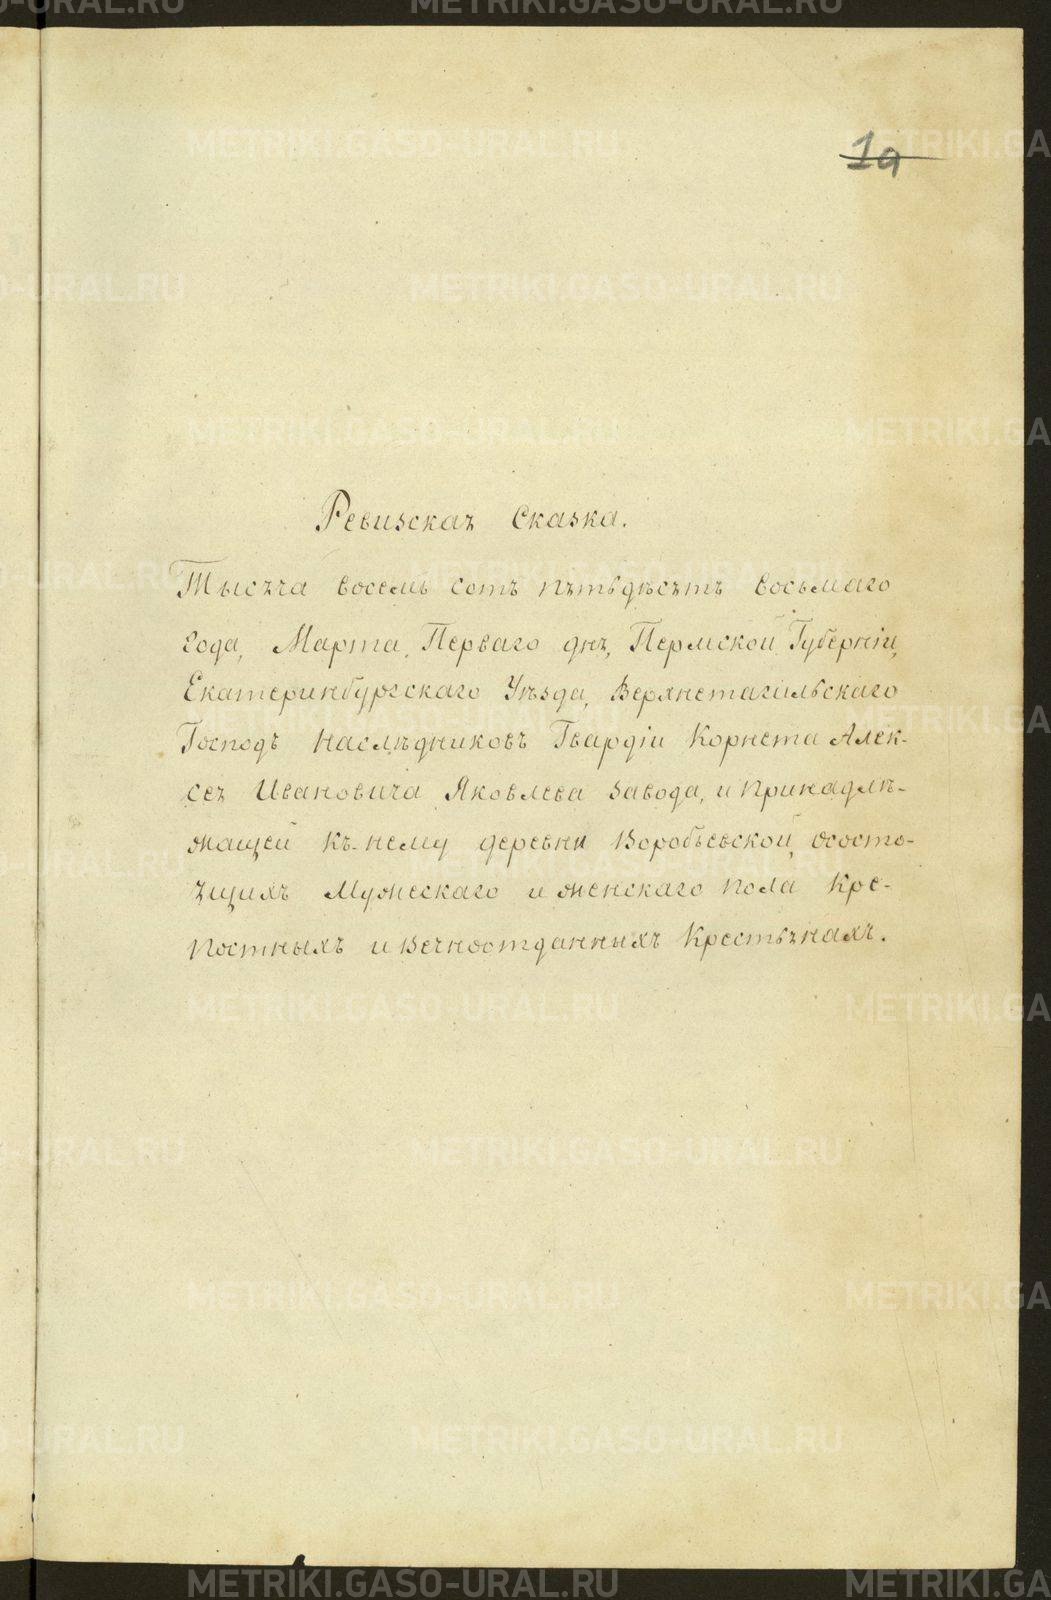 1а
Ревизская Сказка.
Тысяча восемь сотъ пятьдѣсятъ восьмаго
года, Марта, Перваго дня, Пермской Губерніи,
Екатеринбургскаго Уѣзда, Верхнетагильскаго
Господъ Наслѣдниковъ Гвардіи Корнета Алек-
сея Ивановича Яковлева завода, и принадлѣ-
жащей къ нему деревни Воробьевской, осостo-
ящихъ Мужескаго и женскаго пола Кре-
постныхъ и Вечноотданныхъ Крестьянахъ.
METRIKI.GASO-URAL.RU